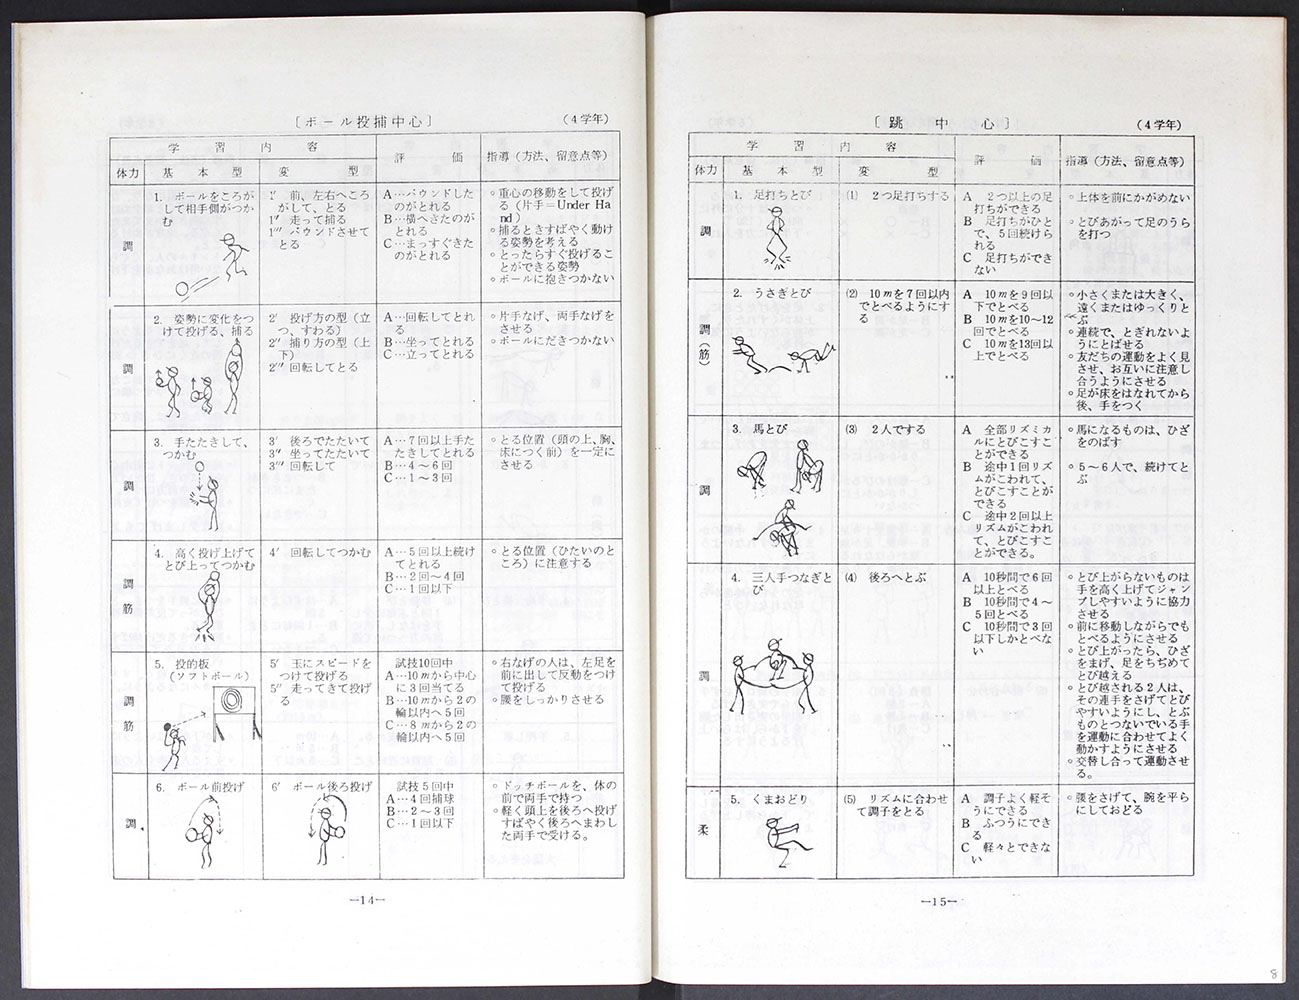 〔ボール投捕中心〕
（4学年）
学習内容
評価
指導（方法、留意点等）
体力
基本型
変型
調
1. ボールをころが
して相手側がつか
む
1′ 前、左右へころ
がして、とる
1″ 走って捕る
1‴ バウンドさせて
とる
A…バウンドした
のがとれる
B…横へきたのが
とれる
C…まっすぐきた
のがとれる
○重心の移動をして投げ
る（片手＝Under Ha
nd）
○捕るときすばやく動け
る姿勢を考える
○とったらすぐ投げるこ
とができる姿勢
○ボールに抱きつかない
調
2. 姿勢に変化をつ
けて投げる、捕る
2′ 投げ方の型（立
つ、すわる）
2″ 捕り方の型（上
下）
2‴ 回転してとる
A…回転してとれ
る
B…坐ってとれる
C…立ってとれる
○片手なげ、両手なげを
させる
○ボールにだきつかない
調
3. 手たたきして、
つかむ
3′ 後ろでたたいて
3″ 坐ってたたいて
3‴ 回転して
A…7回以上手た
たきしてとれる
B…4～6回
C…1～3回
○とる位置（頭の上、胸、
床につく前）を一定に
させる
調
筋
4. 高く投げ上げて
とび上ってつかむ
4′ 回転してつかむ
A…5回以上続け
てとれる
B…2回～4回
C…1回以下
○とる位置（ひたいのと
ころ）に注意する
調
筋
5. 投的板
（ソフトボール）
5′ 玉にスピードを
つけて投げる
5″ 走ってきて投げ
る
試技10回中
A…10mから中心
に3回当てる
B…10mから2の
輪以内へ5回
C…8mから2の
輪以内へ5回
○右なげの人は、左足を
前に出して反動をつけ
て投げる
○腰をしっかりさせる
調
6. ボール前投げ
6′ ボール後ろ投げ
試技5回中
A…4回捕球
B…2～3回
C…1回以下
○ドッチボールを、体の
前で両手で持つ
○軽く頭上を後ろへ投げ
すばやく後ろへまわし
た両手で受ける。
—14—
〔跳中心〕
（4学年）
学習内容
評価
指導（方法、留意点等）
体力
基本型
変型
調
1. 足打ちとび
(1) 2つ足打ちする
A 2つ以上の足
打ちができる
B 足打ちがひと
で、5回続けら
れる
C 足打ちができ
ない
○上体を前にかがめない
○とびあがって足のうら
を打つ
調
（筋）
2. うさぎとび
(2) 10mを7回以内
でとべるようにす
る
A 10mを9回以
下でとべる
B 10mを10～12
回でとべる
C 10mを13回以
上でとべる
○小さくまたは大きく、
遠くまたはゆっくりと
ぶ
○連続で、とぎれないよ
うにとばせる
○友だちの運動をよく見
させ、お互いに注意し
合うようにさせる
○足が床をはなれてから
後、手をつく
調
3. 馬とび
(3) 2人でする
A 全部リズミカ
ルにとびこすこ
とができる
B 途中1回リズ
ムがこわれて、
とびこすことが
できる
C 途中2回以上
リズムがこわれ
て、とびこすこ
とができる。
○馬になるものは、ひざ
をのばす
○5～6人で、続けてと
ぶ
調
4. 三人手つなぎと
び
(4) 後ろへとぶ
A 10秒間で6回
以上とべる
B 10秒間で4～
5回とべる
C 10秒間で3回
以下しかとべな
い
○とび上がらないものは
手を高く上げてジャン
プしやすいように協力
させる
○前に移動しながらでも
とべるようにさせる
○とび上がったら、ひざ
をまげ、足をちぢめて
とび越える
○とび越される2人は、
その連手をさげてとび
やすいようにし、とぶ
ものとつないでいる手
を運動に合わせてよく
動かすようにさせる
○交替し合って運動させ
る。
柔
5. くまおどり
(5) リズムに合わせ
て調子をとる
A 調子よく軽そ
うにできる
B ふつうにでき
る
C 軽々とできな
い
○腰をさげて、腕を平ら
にしておどる
—15—
8